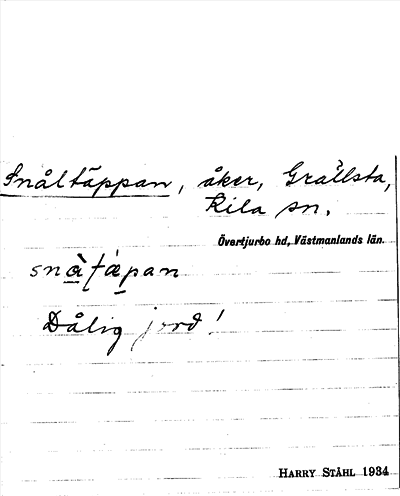 Snåltäppan, åker, Grällsta,
Kila sn.
Övertjurbo hd, Västmanlands län.
Dålig jord!
HARRY STÅHL 1934